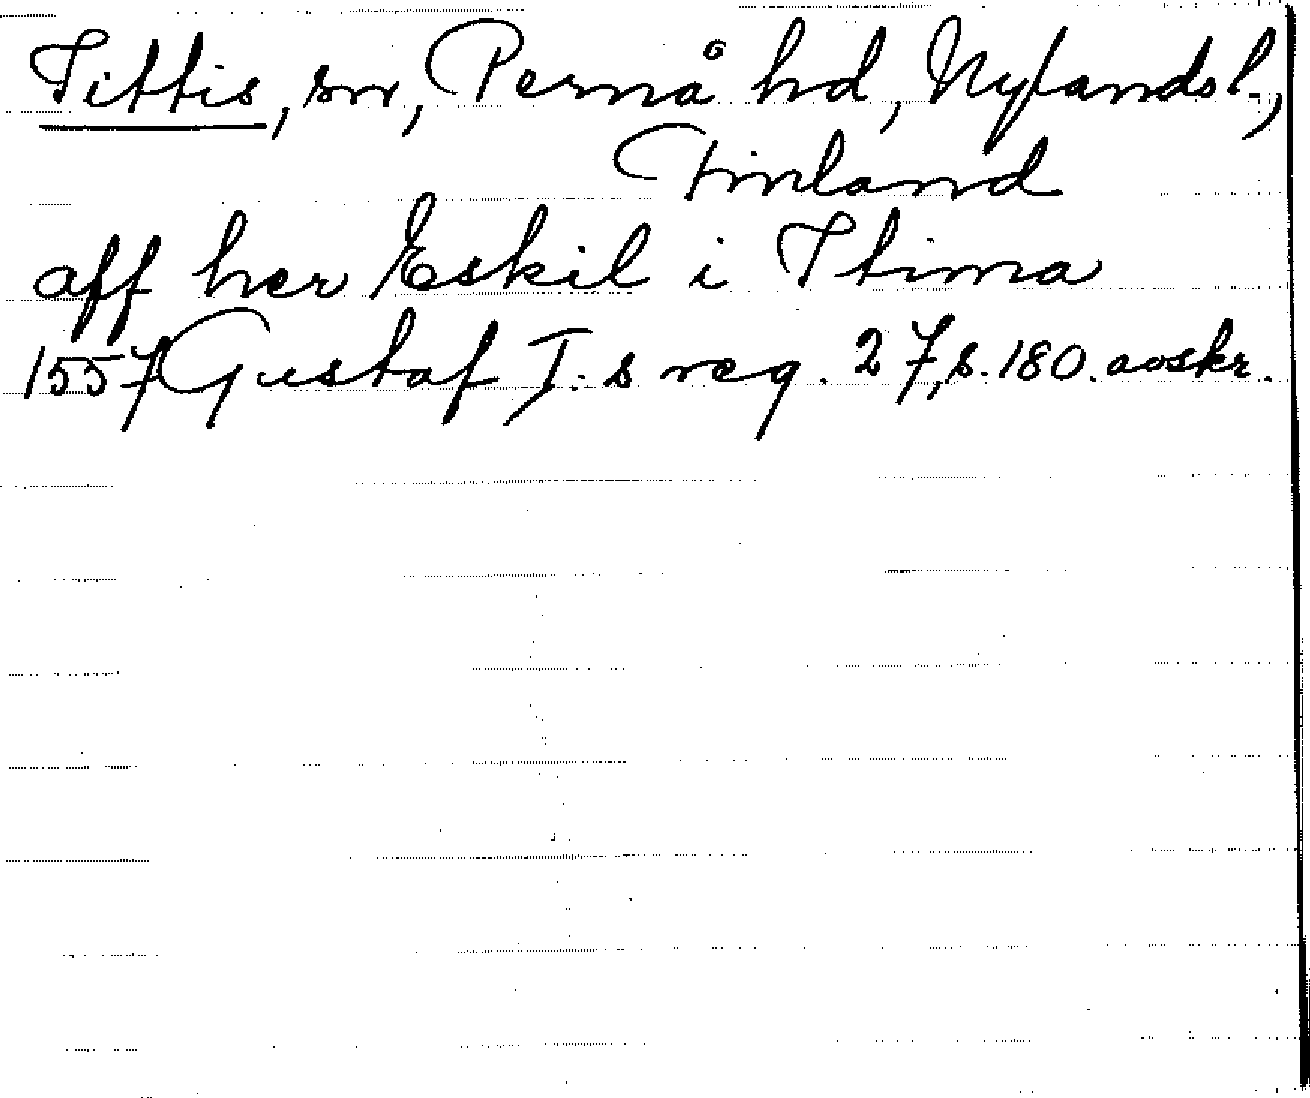 Tittis, sn, Pernå hd, Nylands l.,
Finland
aff her Eskil i Thima
1557 Gustaf I:s reg. 27, s. 180. avskr.